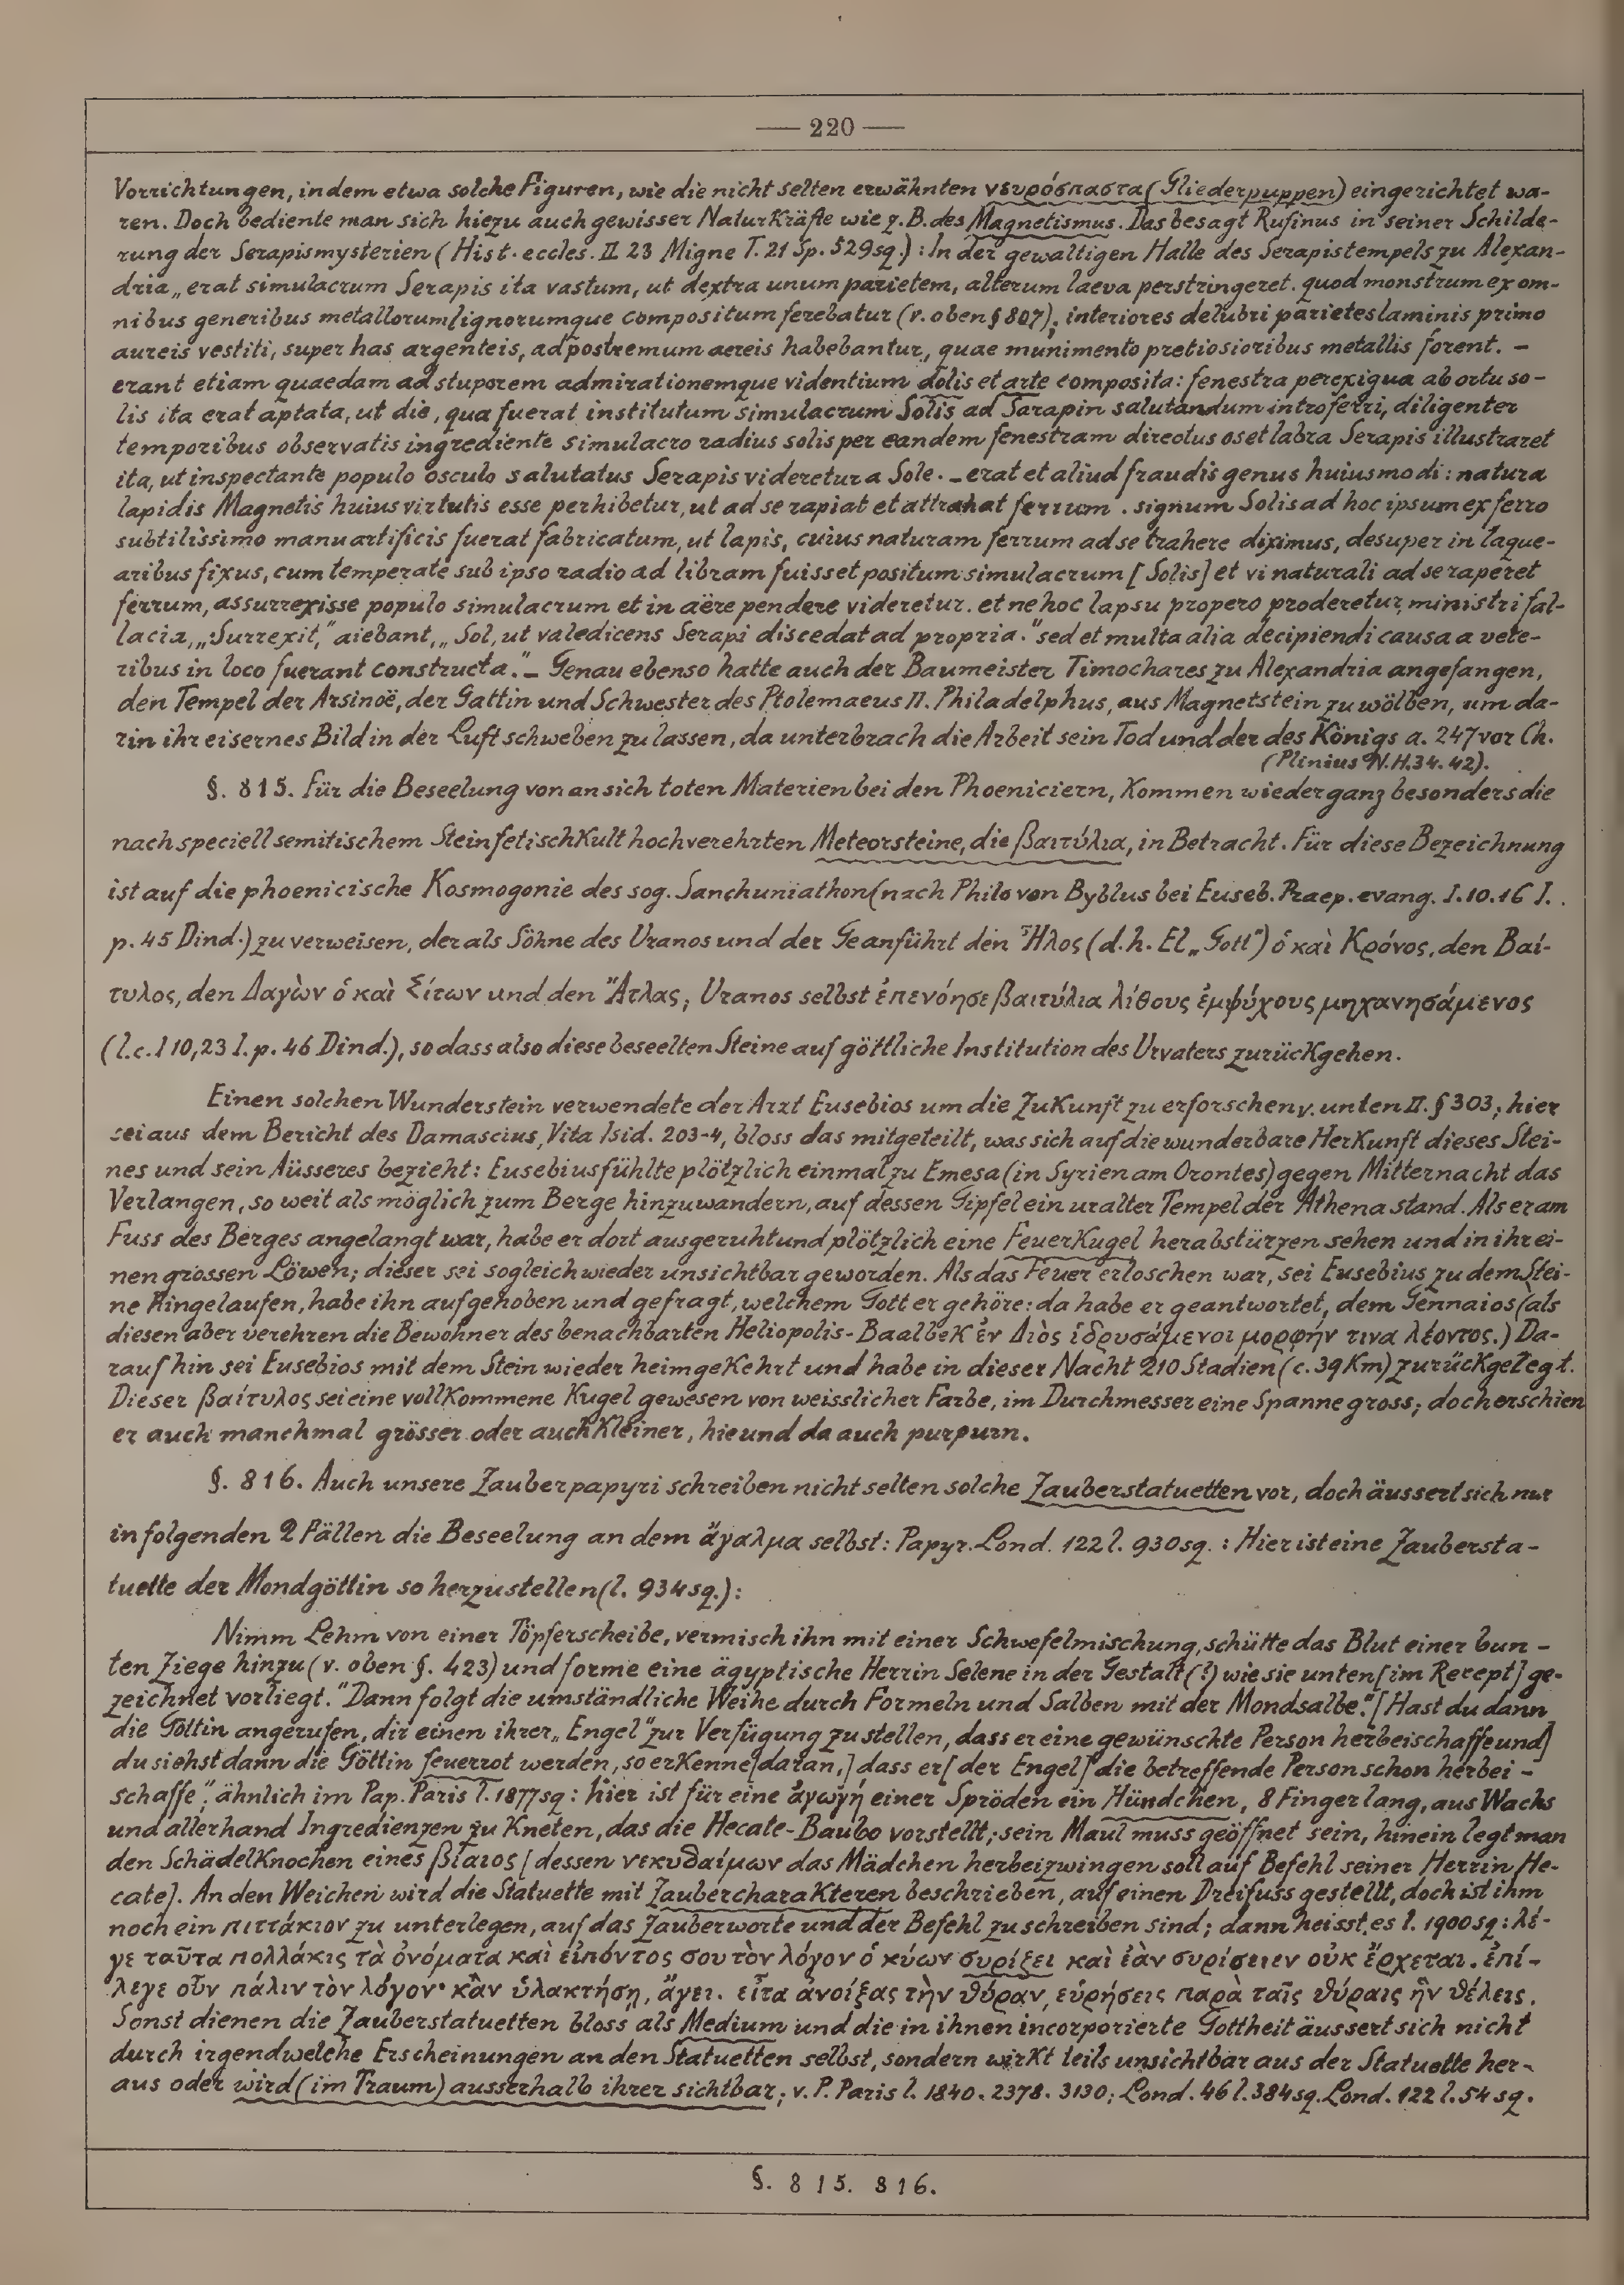 — 220 —
Vorrichtungen, indem etwa solche Figuren, wie die nicht selten erwähnten νευρόσπαστα (Gliederpuppen) eingerichtet wa-
ren. Doch bediente man sich hiezu auch gewisser Naturkräfte wie z. B. des Magnetismus. Das besagt Rufinus in seiner Schilde-
rung der Serapismysterien (Hist. eccles. II 23 Migne T. 21 Sp. 529 sq.): In der gewaltigen Halle des Serapistempels zu Alexan-
dria „erat simulacrum Serapis ita vastum, ut dextra unum parietem, alterum laeva perstringeret. quod monstrum ex om-
nibus generibus metallorum lignorumque compositum ferebatur (v. oben § 807), interiores delubri parietes laminis primo
aureis vestiti, super has argenteis, ad postremum aereis habebantur, quae munimento pretiosioribus metallis forent. –
erant etiam quaedam ad stuporem admirationemque videntium dolis et arte composita: fenestra perexigua ab ortu so-
lis ita erat aptata, ut die, qua fuerat institutum simulacrum Solis ad Sarapin salutandum introferri, diligenter
temporibus observatis ingrediente simulacro radius solis per eandem fenestram directus os et labra Serapis illustraret
ita, ut inspectante populo osculo salutatus Serapis videretur a Sole. – erat et aliud fraudis genus huiusmodi: natura
lapidis Magnetis huius virtutis esse perhibetur, ut ad se rapiat et attrahat ferrum. signum Solis ad hoc ipsum ex ferro
subtilissimo manu artificis fuerat fabricatum, ut lapis, cuius naturam ferrum ad se trahere diximus, desuper in laque-
aribus fixus, cum temperate sub ipso radio ad libram fuisset positum simulacrum [Solis] et vi naturali ad se raperet
ferrum, assurrexisse populo simulacrum et in aëre pendere videretur. et ne hoc lapsu propero proderetur, ministri fal-
lacia, „Surrexit," aiebant, „Sol, ut valedicens Serapi discedat ad propria." sed et multa alia decipiendi causa a vete-
ribus in loco fuerant constructa." – Genau ebenso hatte auch der Baumeister Timochares zu Alexandria angefangen,
den Tempel der Arsinoë, der Gattin und Schwester des Ptolemaeus II. Philadelphus, aus Magnetstein zu wölben, um da-
rin ihr eisernes Bild in der Luft schweben zu lassen, da unterbrach die Arbeit sein Tod und der des Königs a. 247 vor Ch.
(Plinius N. H. 34. 42).
§. 815. Für die Beseelung von an sich toten Materien bei den Phoeniciern, kommen wieder ganz besonders die
nach speciell semitischem Steinfetischkult hochverehrten Meteorsteine, die βαιτύλια, in Betracht. Für diese Bezeichnung
ist auf die phoenicische Kosmogonie des sog. Sanchuniathon (nach Philo von Byblus bei Euseb. Praep. evang. I. 10. 16 I.
p. 45 Dind.) zu verweisen, der als Söhne des Uranos und der Ge anführt den Ἦλος (d. h. El „Gott") ὁ καὶ Κρόνος, den Βαί-
τυλος, den Δαγὼν ὁ καὶ Σίτων und den Ἄτλας; Uranos selbst ἐπενόησε βαιτύλια λίθους ἐμψύχους μηχανησάμενος
(l. c. I 10, 23 I. p. 46 Dind.), so dass also diese beseelten Steine auf göttliche Institution des Urvaters zurückgehen.
Einen solchen Wunderstein verwendete der Arzt Eusebios um die Zukunft zu erforschen v. unten II. § 303; hier
sei aus dem Bericht des Damascius, Vita Isid. 203-4, bloss das mitgeteilt, was sich auf die wunderbare Herkunft dieses Stei-
nes und sein Äusseres bezieht: Eusebius fühlte plötzlich einmal zu Emesa (in Syrien am Orontes) gegen Mitternacht das
Verlangen, so weit als möglich zum Berge hinzuwandern, auf dessen Gipfel ein uralter Tempel der Athena stand. Als er am
Fuss des Berges angelangt war, habe er dort ausgeruht und plötzlich eine Feuerkugel herabstürzen sehen und in ihr ei-
nen grossen Löwen; dieser sei sogleich wieder unsichtbar geworden. Als das Feuer erloschen war, sei Eusebius zu dem Stei-
ne hingelaufen, habe ihn aufgehoben und gefragt, welchem Gott er gehöre: da habe er geantwortet, dem Gennaios (als
diesen aber verehren die Bewohner des benachbarten Heliopolis-Baalbek ἐν Διὸς ἱδρυσάμενοι μορφήν τινα λέοντος.) Da-
rauf hin sei Eusebios mit dem Stein wieder heimgekehrt und habe in dieser Nacht 210 Stadien (c. 39 Km) zurückgelegt.
Dieser βαίτυλος sei eine vollkommene Kugel gewesen von weisslicher Farbe, im Durchmesser eine Spanne gross; doch erschien
er auch manchmal grösser oder auch kleiner, hie und da auch purpurn.
§. 816. Auch unsere Zauberpapyri schreiben nicht selten solche Zauberstatuetten vor, doch äussert sich nur
in folgenden 2 Fällen die Beseelung an dem ἄγαλμα selbst: Papyr. Lond. 122 l. 930 sq. : Hier ist eine Zaubersta-
tuette der Mondgöttin so herzustellen (l. 934 sq.):
Nimm Lehm von einer Töpferscheibe, vermisch ihn mit einer Schwefelmischung, schütte das Blut einer bun-
ten Ziege hinzu (v. oben §. 423) und forme eine ägyptische Herrin Selene in der Gestalt (?) wie sie unten [im Recept] ge-
zeichnet vorliegt." Dann folgt die umständliche Weihe durch Formeln und Salben mit der Mondsalbe." [Hast du dann
die Göttin angerufen, dir einen ihrer „Engel" zur Verfügung zu stellen, dass er eine gewünschte Person herbeischaffe und]
du siehst dann die Göttin feuerrot werden, so erkenne [daran,] dass er [der Engel] die betreffende Person schon herbei-
schaffe", ähnlich im Pap. Paris l. 1877 sq: hier ist für eine ἀγωγή einer Spröden ein Hündchen, 8 Finger lang, aus Wachs
und allerhand Ingredienzen zu kneten, das die Hecate-Baubo vorstellt; sein Maul muss geöffnet sein, hinein legt man
den Schädelknochen eines βίαιος [dessen νεκυδαίμων das Mädchen herbeizwingen soll auf Befehl seiner Herrin He-
cate]. An den Weichen wird die Statuette mit Zaubercharakteren beschrieben, auf einen Dreifuss gestellt, doch ist ihm
noch ein πιττάκιον zu unterlegen, auf das Zauberworte und der Befehl zu schreiben sind; dann heisst es l. 1900 sq: λέ-
γε ταῦτα πολλάκις τὰ ὀνόματα καὶ εἰπόντος σου τὸν λόγον ὁ κύων συρίξει καὶ ἐὰν συρίσειεν οὐκ ἔρχεται. ἐπί-
λεγε οὖν πάλιν τὸν λόγον· κἂν ὑλακτήσῃ, ἄγει. εἶτα ἀνοίξας τὴν θύραν, εὑρήσεις παρὰ ταῖς θύραις ἣν θέλεις.
Sonst dienen die Zauberstatuetten bloss als Medium und die in ihnen incorporierte Gottheit äussert sich nicht
durch irgendwelche Erscheinungen an den Statuetten selbst, sondern wirkt teils unsichtbar aus der Statuette her-
aus oder wird (im Traum) ausserhalb ihrer sichtbar; v. P. Paris l. 1840. 2378. 3130; Lond. 46 l. 384 sq. Lond. 122 l. 54 sq.
§. 815. 816.